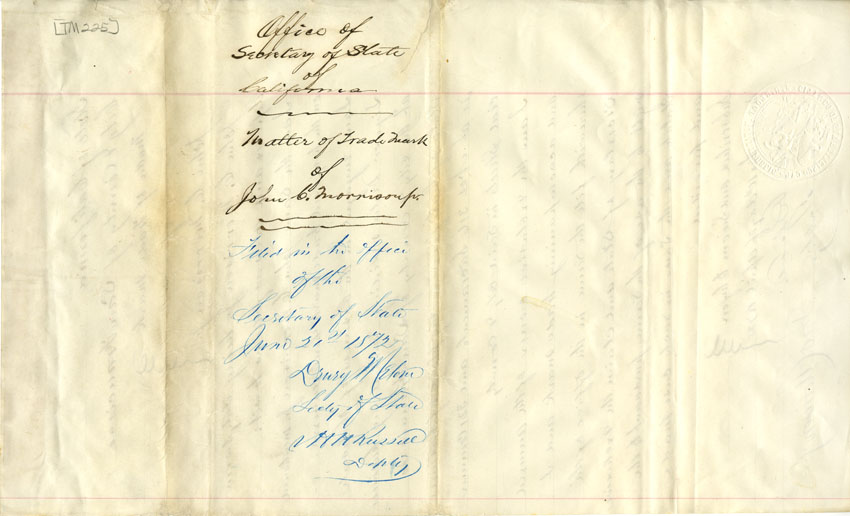 [TM225]
Office of
Secretary of State
of
California
Matter of Trade Mark
of
John C. Morrison Jr.
Filed in the office
of the
Secretary of State
June 21st 1872
Drury Melone
Secty of State
Russell
Depty